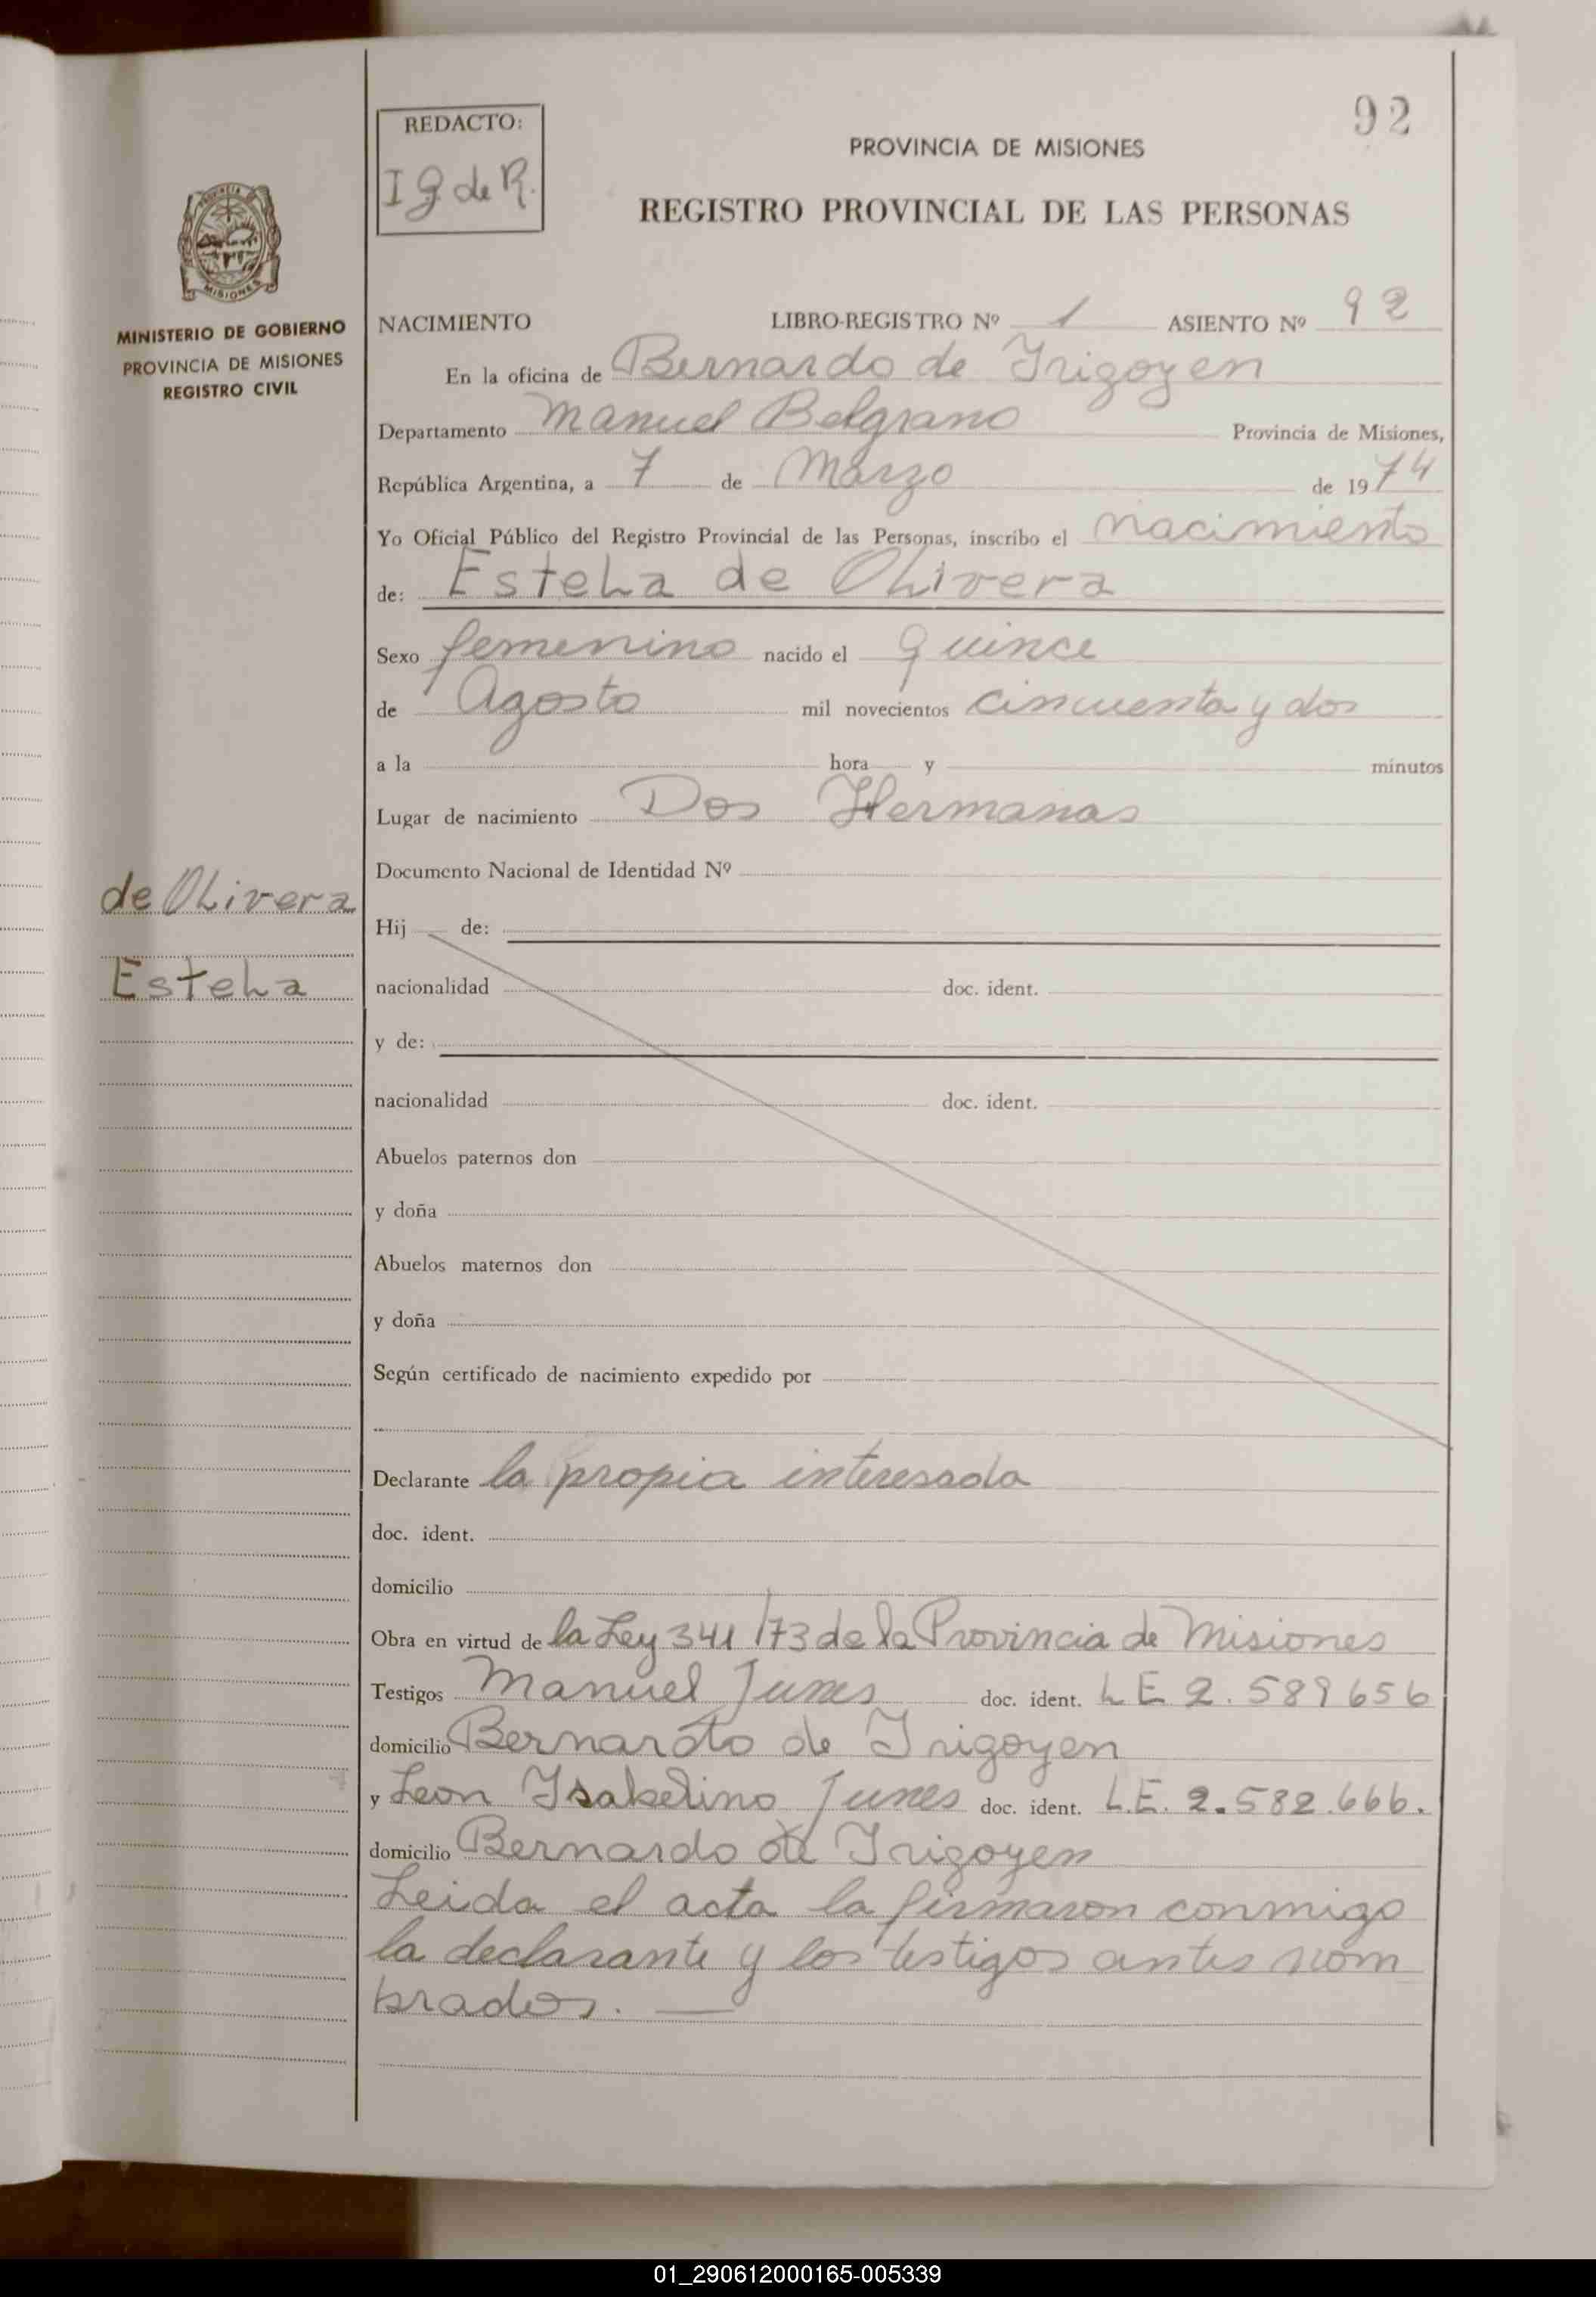 92
REDACTO:
I g de R.
PROVINCIA DE MISIONES
REGISTRO PROVINCIAL DE LAS PERSONAS
PROVINCIA DE
MISIONES
MINISTERIO DE GOBIERNO
PROVINCIA DE MISIONES
REGISTRO CIVIL
NACIMIENTO LIBRO-REGISTRO Nº 1 ASIENTO Nº 92
En la oficina de Bernardo de Irigoyen
Departamento Manuel Belgrano Provincia de Misiones,
República Argentina, a 7 de Marzo de 1974
Yo Oficial Público del Registro Provincial de las Personas, inscribo el nacimiento
de: Estela de Olivera
Sexo femenino nacido el quince
de Agosto mil novecientos cincuenta y dos
a la hora y minutos
Lugar de nacimiento Dos Hermanas
Documento Nacional de Identidad Nº
de Olivera
Estela
Hij de:
nacionalidad doc. ident.
y de:
nacionalidad doc. ident.
Abuelos paternos don
y doña
Abuelos maternos don
y doña
Según certificado de nacimiento expedido por
Declarante la propia interesada
doc. ident.
domicilio
Obra en virtud de la Ley 341/73 de la Provincia de Misiones
Testigos Manuel Junes doc. ident. LE 2.589656
domicilio Bernardo de Irigoyen
y Leon Isabelino Junes doc. ident. L.E. 2.582.666.
domicilio Bernardo de Irigoyen
Leida el acta la firmaron conmigo
la declarante y los testigos antes nom
brados.
01_290612000165-005339